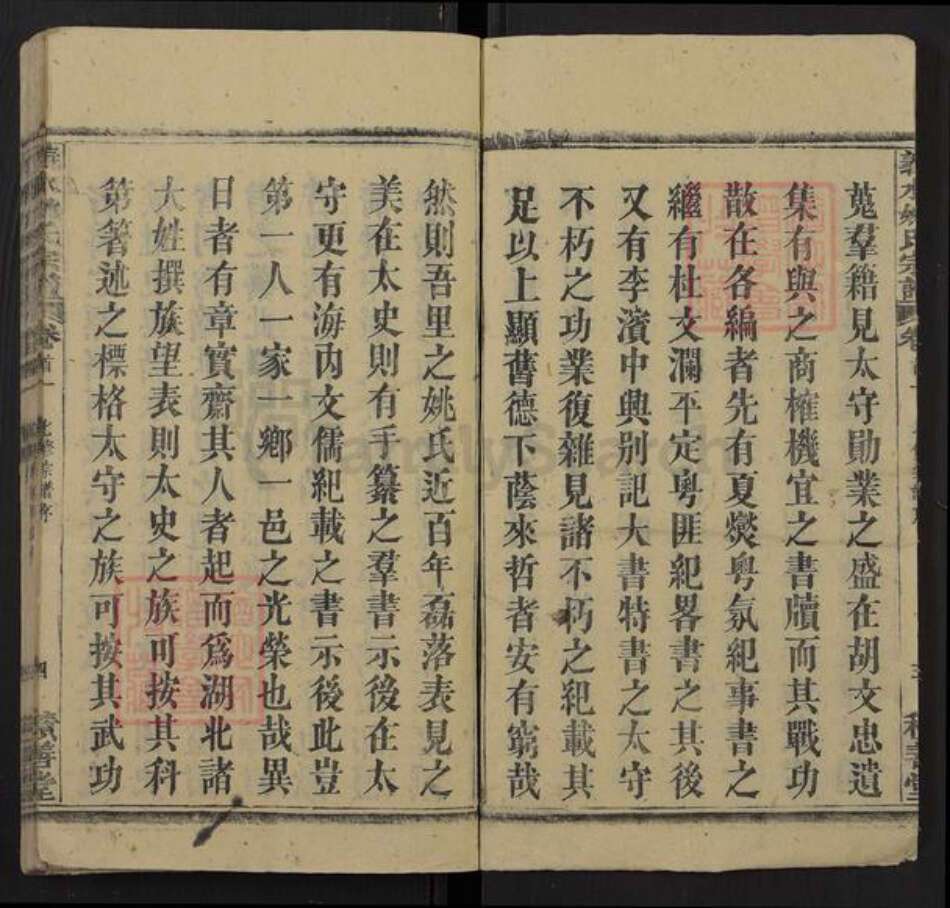 蒐羣籍見太守勛業之盛在胡文忠遺
集有與之商榷機宜之書牘而其戰功
散在各編者先有夏燮粤氛紀事書之
繼有杜文瀾平定粤匪紀畧書之其後
又有李濱中興别記大書特書之太守
不朽之功業復雜見諸不朽之紀載其
足以上顯舊德下蔭來哲者安有窮哉
然則吾里之姚氏近百年磊落表見之
美在太史則有手纂之羣書示後在太
守更有海内文儒紀載之書示後此豈
第一人一家一鄉一邑之光榮也哉異
日者有章實齋其人者起而爲湖北諸
大姓撰族望表則太史之族可按其科
第箸述之標格太守之族可按其武功
宗譜
卷首
四
積善堂